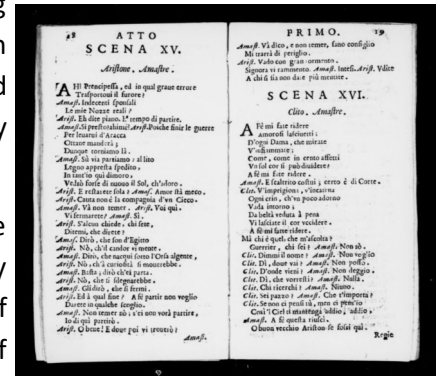 18 ATTO
SCENA XV.
Aristone. Amastre.
AHi Prencipessa, ed in qual graue errore
Trasportoui il furore?
Amast. Indecenti sponsali
Le mie Nozze reali?
Arist. Eh dite piano. E' tempo di partire.
Amast. Si presto Arist. Poiche finir le guerre
Per leuarui d'Aracca
Ottone mandarà;
Dunque torniamo là.
Amast. Sù via partiamo: al lito
Legno appresta spedito.
In tant'io quì dimoro.
Veder forse di nuouo il Sol, ch'adoro.
Arist. E restarete sola? Amast. Amor stà meco.
Arist. Cauta non è la compagnia d'vn Cieco.
Amast. Và non temer. Arist. Voi quì.
Vi fermarete? Amast. Sì.
Arist. S'alcun chiede, chi sete,
Ditemi, che direte?
Amast. Dirò, che son d'Egitto
Arist. Nò, ch'il candor vi mente.
Amast. Dirò, che nacqui sotto l'Orsa algente,
Arist. Nò, ch'à curiosità si mouerebbe.
Amast. Basta; dirò ch'ei parta.
Arist. Nò, che si sdegnarebbe.
Amast. Gli dirò, che si fermi.
Arist. Ed à qual fine? A fè partir non voglio
Dareste in qualche scoglio.
Amast. Non temer nò; s'ei non vorà partire,
Io di quì partirò.
Arist. O bene! E doue poi vi trouerò?
Amast.
PRIMO. 19
Amast. Và dico, e non temer, sano consiglio
Mi trarrà di periglio.
Arist. Vado con gran tormento.
Signora vi rammento. Amast. Intesi. Arist. Vdite
A chi si sia non date più mentite.
SCENA XVI.
Clito. Amastre.
A Fè mi fate ridere
Amorosi lasciuetti;
D'ogni Dama, che mirate
V'infiammate;
Come, come in cento affetti
Vn sol cor si può diuidere?
A fè mi fate ridere.
Amast. E scaltrito costui; certo è di Corte.
Clit. V'imprigiona, v'incatena
Ogni crin, ch'vn poco adorno
Vada intorno;
Da beltà veduta à pena
Vi lasciate il cor vccidere.
A fè mi fate ridere.
Mà chi è quel, che m'ascolta?
Guerrier, chi sei? Amast. Non sò.
Clit. Dimmi il nome? Amast. Non voglio
Clit. Dì, doue vai? Amast. Non posso.
Clit. D'onde vieni? Amast. Non deggio.
Clit. Dì, che vorresti? Amast. Nulla.
Clit. Chi ricerchi? Amast. Niuno.
Clit. Sei pazzo? Amast. Che t'importa?
Clit. Se non ci pensi tù, men ci pens'io
Così 'l Ciel ti mantenga addio, addio.
Amast. A fè questa riuscì.
O buon vecchio Ariston se fossi quì.
Regie